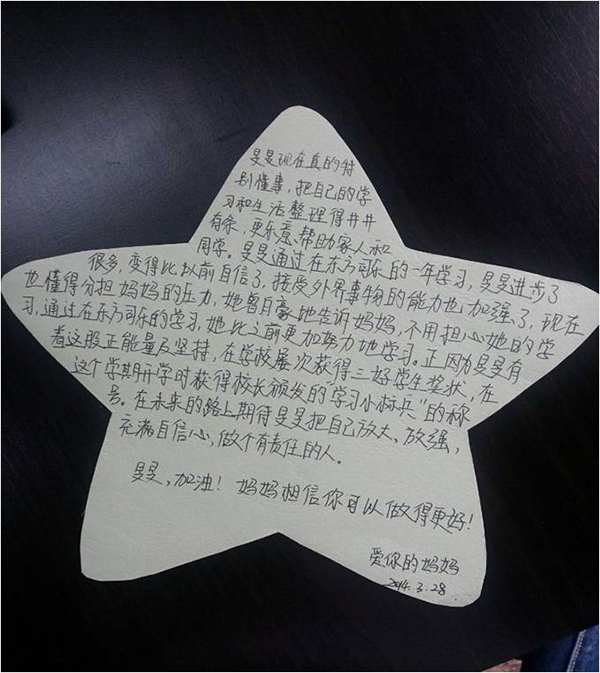 旻旻现在真的特
别懂事，把自己的学
习和生活整理得井井
有条，更乐意帮助家人和
同学。旻旻通过在东方可乐的一年学习，旻旻进步了
很多，变得比以前自信了，接受外界事物的能力也加强了，现在
也懂得分担妈妈的压力，她曾自豪地告诉妈妈，不用担心她的学
习，通过在东方可乐的学习，她比之前更加努力地学习。正因为旻旻有
着这股正能量及坚持，在学校屡次获得三好学生奖状，在
这个学期开学时获得校长颁发的"学习小标兵"的称
号。在未来的路上期待旻旻把自己放大、放强，
充满自信心，做个有责任的人。
旻旻，加油！妈妈相信你可以做得更好！
爱你的妈妈
2014.3.28.